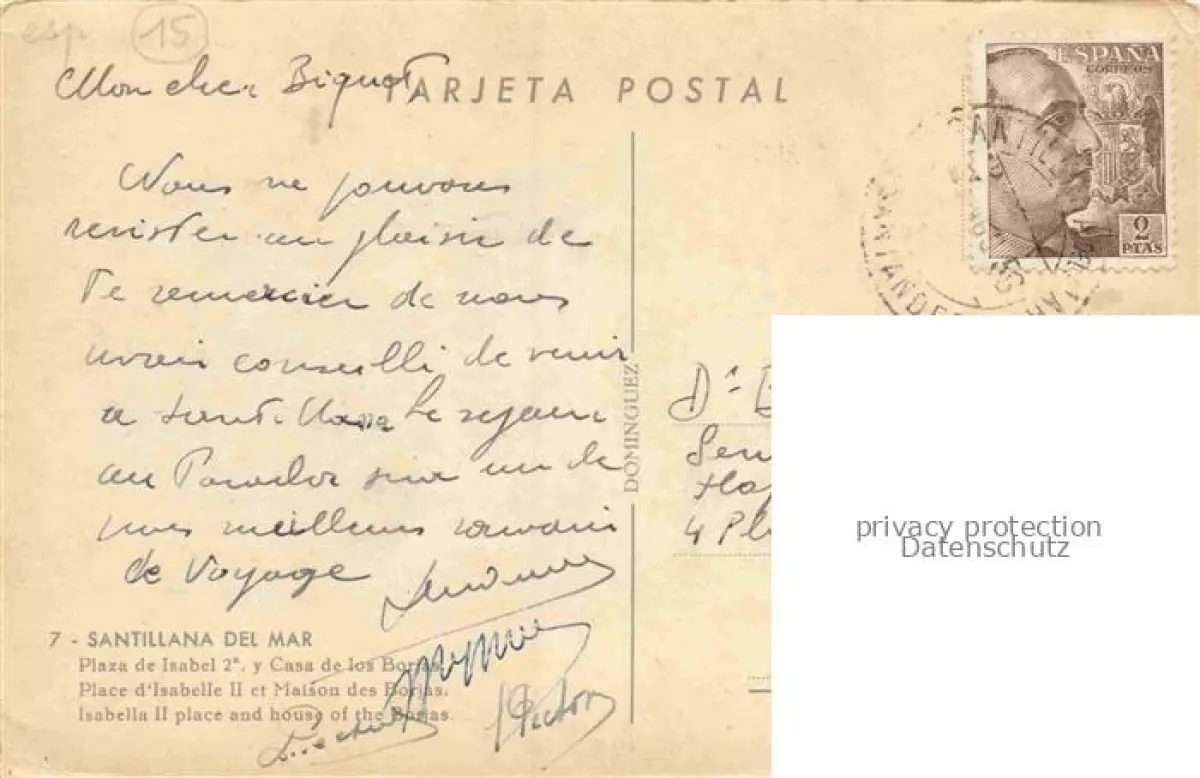 esp 15
Mon cher Biquot
TARJETA POSTAL
ESPAÑA
CORREOS
2
PTAS
SANTANDER
Nous ne pouvons
resister au plaisir de
te remercier de nous
avoir conseillé de venir
a Santillana Le sejour
au Parador sera un de
nos meilleurs souvenirs
de Voyage
DOMINGUEZ
Dr
4 Pl
privacy protection
Datenschutz
7 - SANTILLANA DEL MAR
Plaza de Isabel 2ª. y Casa de los Borjas.
Place d'Isabelle II et Maison des Borjas.
Isabella II place and house of the Borjas.